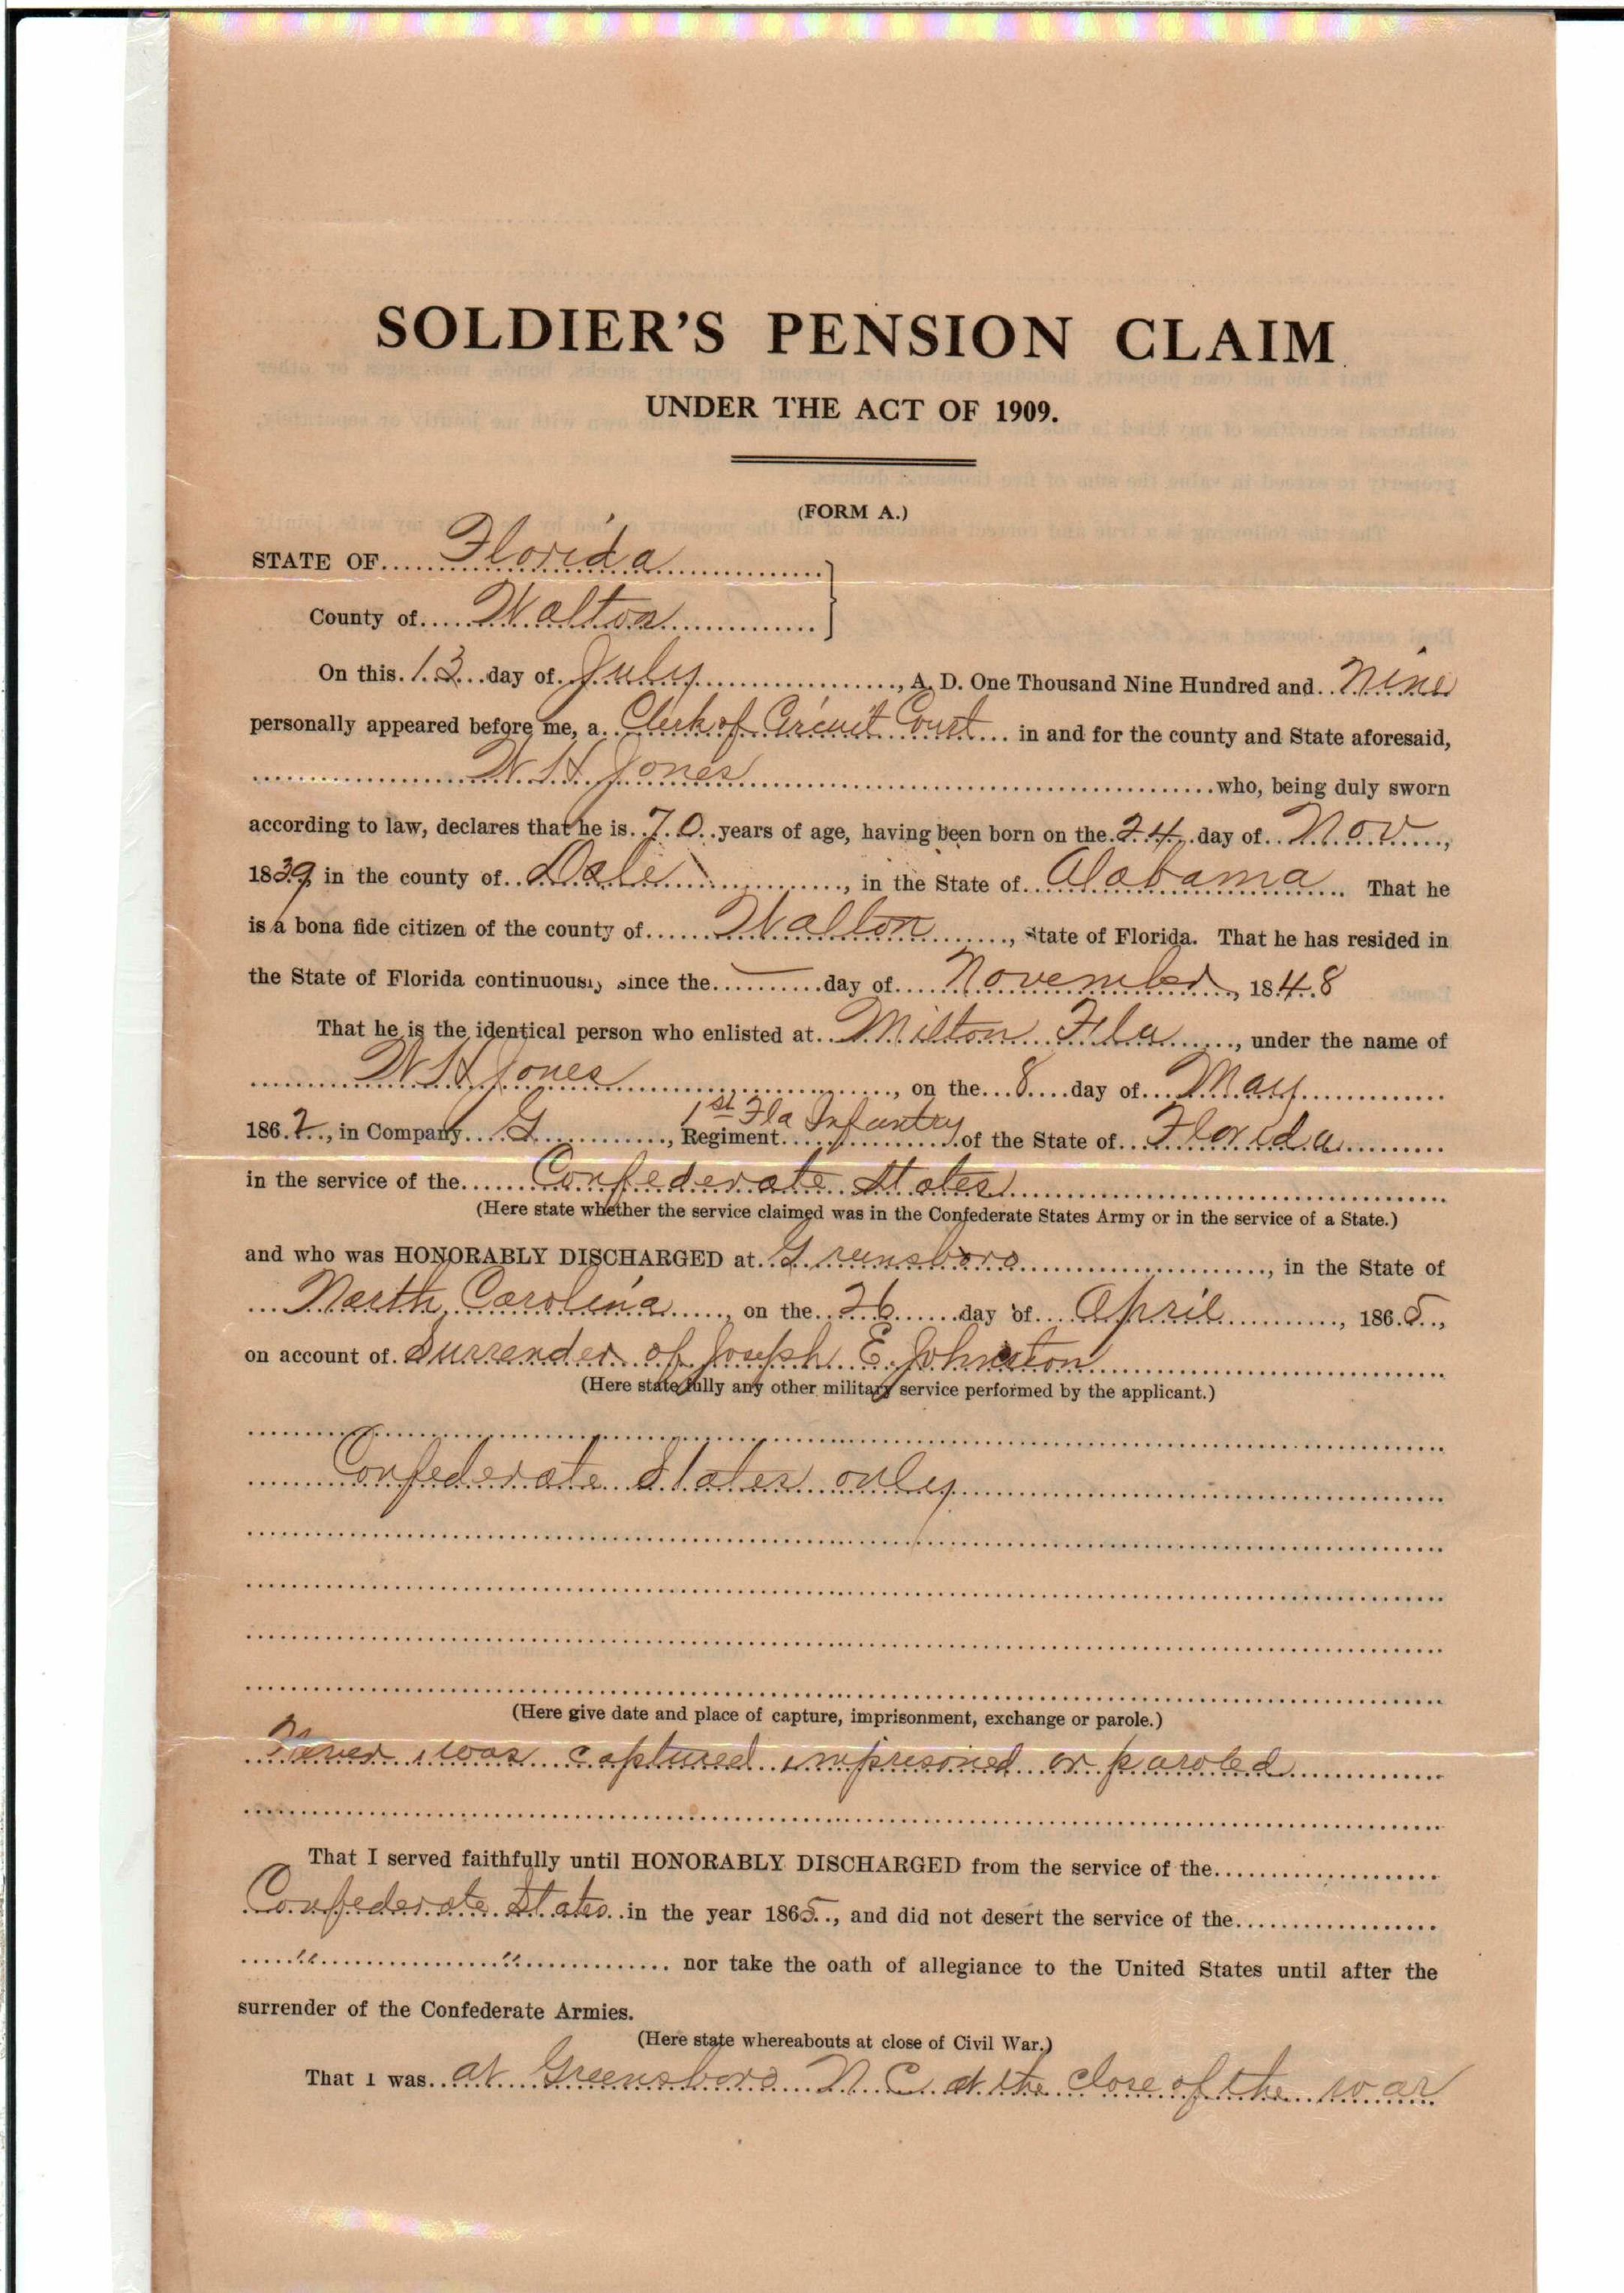 SOLDIER'S PENSION CLAIM
UNDER THE ACT OF 1909.
(FORM A.)
STATE OF Florida
County of Walton
On this 13 day of July, A. D. One Thousand Nine Hundred and Nine
personally appeared before me, a Clerk of Circuit Court in and for the county and State aforesaid,
W H Jones who, being duly sworn
according to law, declares that he is 70 years of age, having been born on the 24 day of Nov,
1839, in the county of Dale, in the State of Alabama. That he
is a bona fide citizen of the county of Walton, State of Florida. That he has resided in
the State of Florida continuously since the — day of November, 1848
That he is the identical person who enlisted at Milton Fla, under the name of
W H Jones, on the 8 day of May
1862, in Company G, Regiment 1st Fla Infantry of the State of Florida
in the service of the Confederate States
(Here state whether the service claimed was in the Confederate States Army or in the service of a State.)
and who was HONORABLY DISCHARGED at Greensboro, in the State of
North Carolina, on the 26 day of April, 1865,
on account of Surrender of Joseph E. Johnston
(Here state fully any other military service performed by the applicant.)
Confederate States only
(Here give date and place of capture, imprisonment, exchange or parole.)
Never was captured imprisoned or paroled
That I served faithfully until HONORABLY DISCHARGED from the service of the
Confederate States in the year 1865, and did not desert the service of the
" " nor take the oath of allegiance to the United States until after the
surrender of the Confederate Armies.
(Here state whereabouts at close of Civil War.)
That I was at Greensboro N. C. at the close of the war